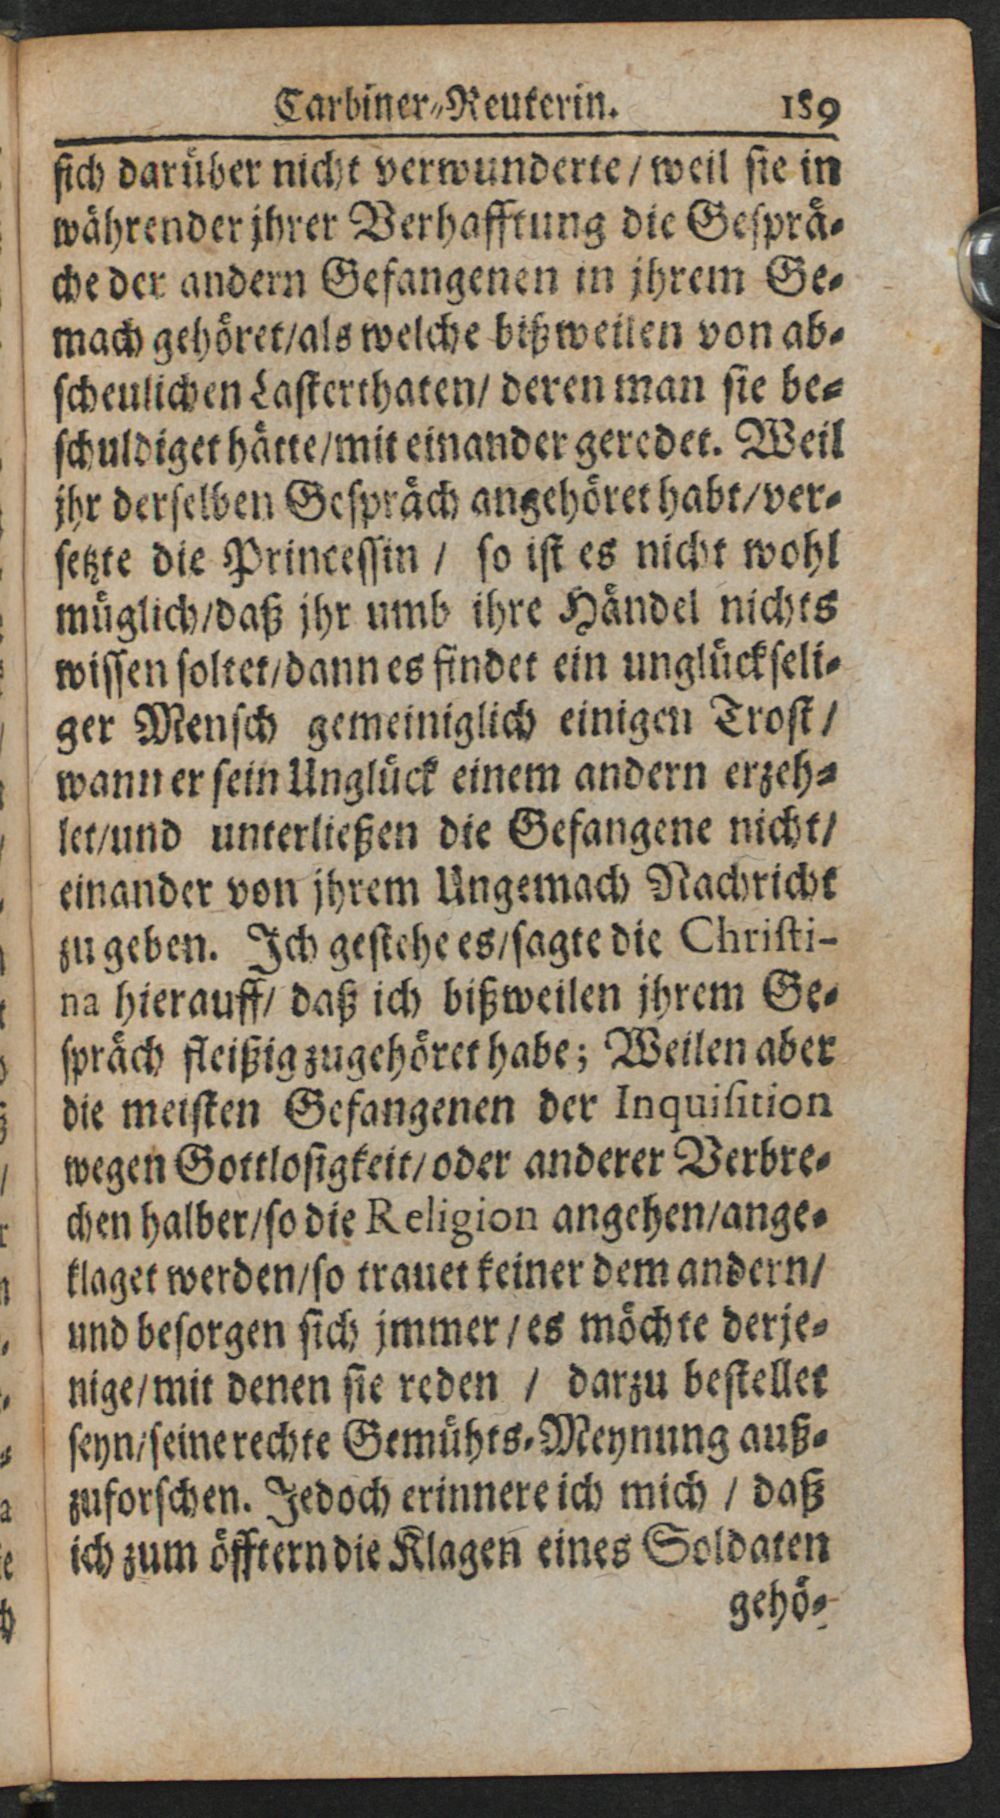 Carbiner-Reuterin. 189
sich darüber nicht verwunderte/ weil sie in
währender jhrer Verhafftung die Gesprä-
che der andern Gefangenen in jhrem Ge-
mach gehöret/als welche bißweilen von ab-
scheulichen Lasterthaten/ deren man sie be-
schuldiget hätte/mit einander geredet. Weil
jhr derselben Gespräch angehöret habt/ver-
setzte die Princessin / so ist es nicht wohl
müglich/daß jhr umb ihre Händel nichts
wissen soltet/dann es findet ein unglückseli-
ger Mensch gemeiniglich einigen Trost/
wann er sein Unglück einem andern erzeh-
let/und unterließen die Gefangene nicht/
einander von jhrem Ungemach Nachricht
zu geben. Ich gestehe es/sagte die Christi-
na hierauff/ daß ich bißweilen jhrem Ge-
spräch fleißig zugehöret habe; Weilen aber
die meisten Gefangenen der Inquisition
wegen Gottlosigkeit/oder anderer Verbre-
chen halber/so die Religion angehen/ange-
klaget werden/so trauet keiner dem andern/
und besorgen sich jmmer/es möchte derje-
nige/mit denen sie reden / darzu bestellet
seyn/seine rechte Gemühts-Meynung auß-
zuforschen. Jedoch erinnere ich mich / daß
ich zum öfftern die Klagen eines Soldaten
gehö-